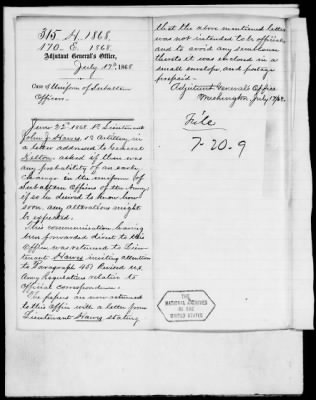 315 H. 1868.
170 E. 1868.
Adjutant General's Office,
July 17th, 1868
Case of Uniform of Subaltern
Officers.
June 22d 1868 1st Lieutenant
John J. 1st Artillery, in
a letter addressed to General
Kelton, asked if there was
any probability of an early
change in the uniform of
Subaltern Officers of the Army,
if so he desired to know how
soon, any alterations might
be expected.
This communication having
been forwarded direct to this
Office was returned to Lieu-
tenant inviting attention
to Paragraph 451 Revised
Army Regulations relative to
Official correspondence.
The papers are now returned
to this office with a letter from
Lieutenant stating
that the above mentioned letter
was not intended to be official,
and to avoid any semblance
thereto it was enclosed in a
small envelope, and postage
prepaid.
Adjutant General's Office
Washington, July 17/68.
File
7-20-9
THE
NATIONAL ARCHIVES
OF THE
UNITED STATES